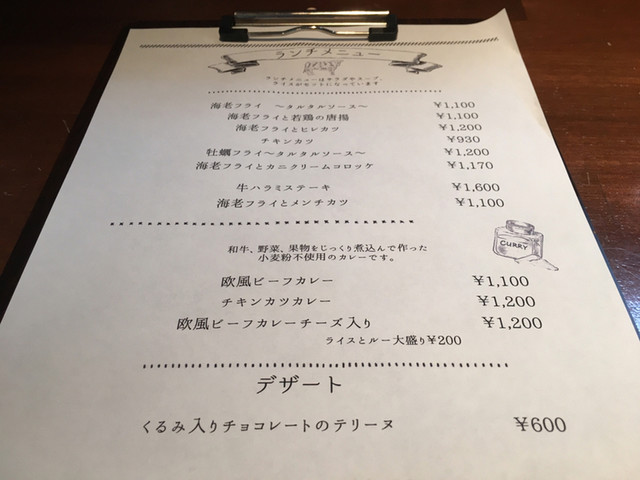 ランチメニュー
ランチメニューはサラダやスープ、
ライスがセットになっています。
海老フライ ～タルタルソース～ ¥1,100
海老フライと若鶏の唐揚 ¥1,100
海老フライとヒレカツ ¥1,200
チキンカツ ¥930
牡蠣フライ～タルタルソース～ ¥1,200
海老フライとカニクリームコロッケ ¥1,170
牛ハラミステーキ ¥1,600
海老フライとメンチカツ ¥1,100
和牛、野菜、果物をじっくり煮込んで作った
小麦粉不使用のカレーです。
CURRY
欧風ビーフカレー ¥1,100
チキンカツカレー ¥1,200
欧風ビーフカレーチーズ入り ¥1,200
ライスとルー大盛り¥200
デザート
くるみ入りチョコレートのテリーヌ ¥600